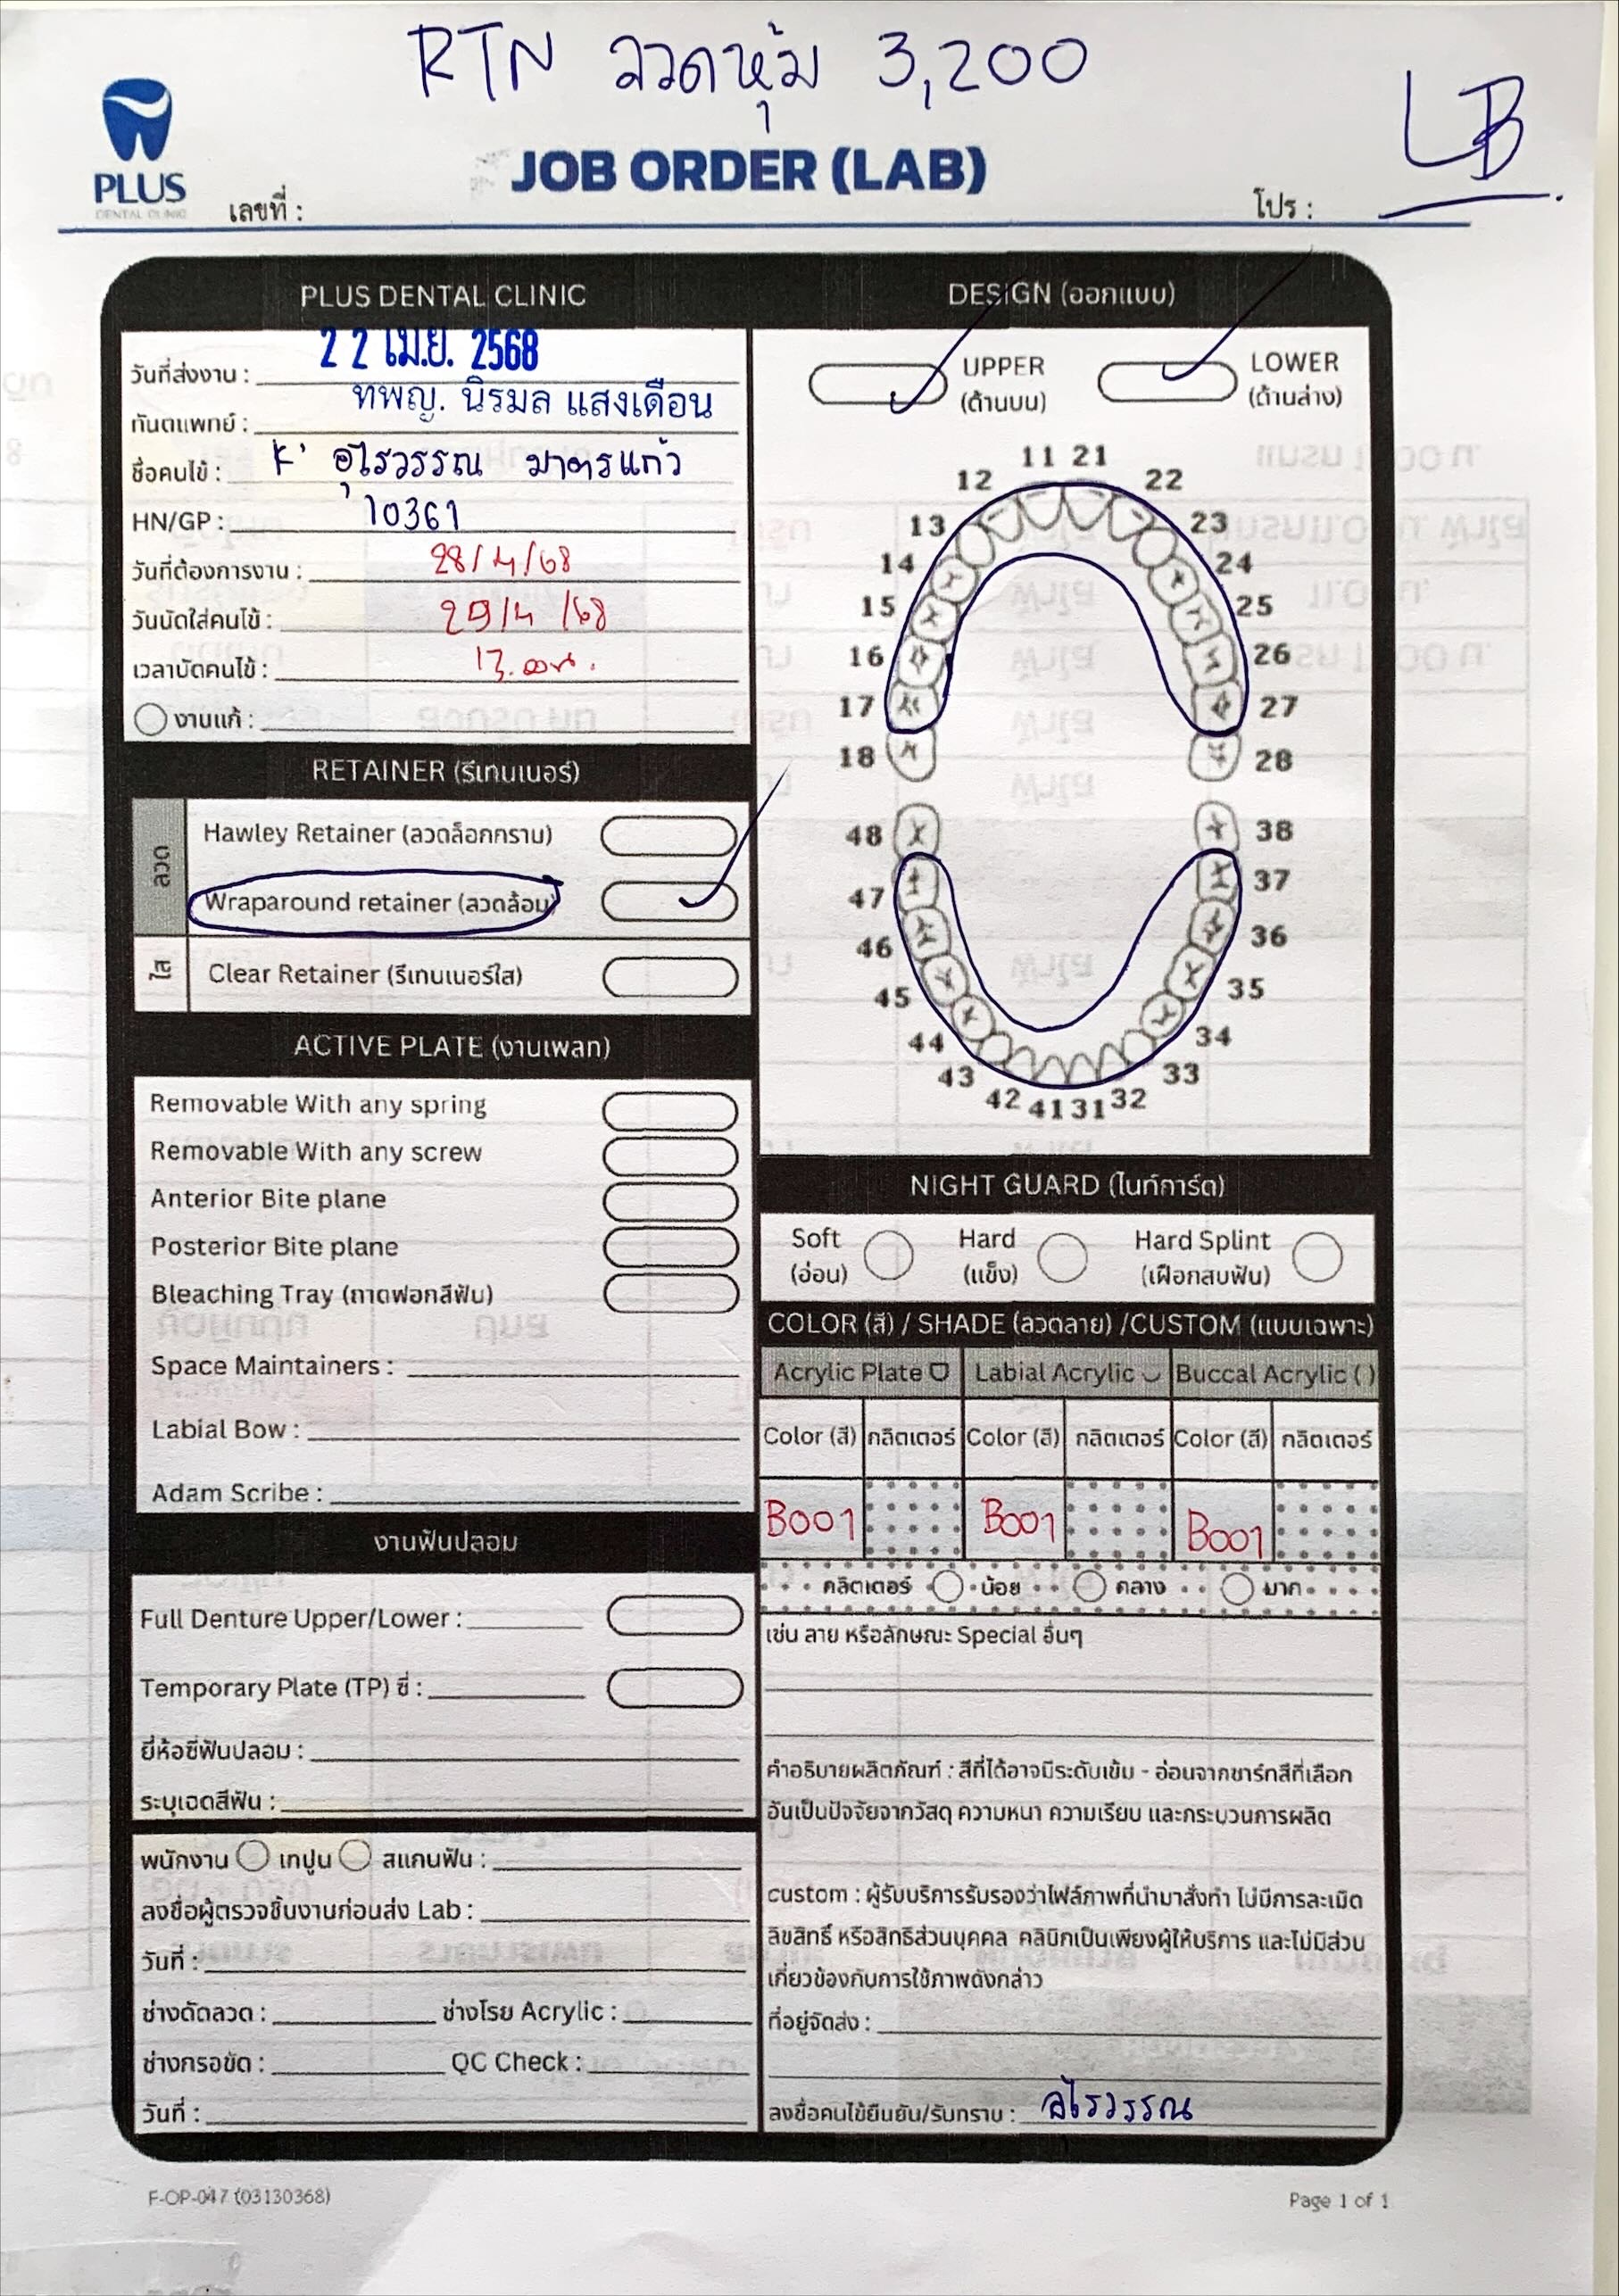 RTN ลวดหุ้ม 3,200
LB
PLUS
DENTAL CLINIC
JOB ORDER (LAB)
เลขที่ :
โปร :
PLUS DENTAL CLINIC
วันที่ส่งงาน : 22 เม.ย. 2568
ทันตแพทย์ : ทพญ. นิรมล แสงเดือน
ชื่อคนไข้ : K' อุไรวรรณ มาตรแก้ว
HN/GP : 10361
วันที่ต้องการงาน : 28/4/68
วันนัดใส่คนไข้ : 29/4/68
เวลานัดคนไข้ : 17.00น.
งานแก้ :
RETAINER (รีเทนเนอร์)
ลวด
Hawley Retainer (ลวดล็อกกราม)
Wraparound retainer (ลวดล้อม)
ใส
Clear Retainer (รีเทนเนอร์ใส)
ACTIVE PLATE (งานเพลท)
Removable With any spring
Removable With any screw
Anterior Bite plane
Posterior Bite plane
Bleaching Tray (ถาดฟอกสีฟัน)
Space Maintainers :
Labial Bow :
Adam Scribe :
งานฟันปลอม
Full Denture Upper/Lower :
Temporary Plate (TP) ซี่ :
ยี่ห้อซี่ฟันปลอม :
ระบุเฉดสีฟัน :
พนักงาน เทปูน สแกนฟัน :
ลงชื่อผู้ตรวจชิ้นงานก่อนส่ง Lab :
วันที่ :
ช่างดัดลวด : ช่างโรย Acrylic :
ช่างกรอขัด : QC Check :
วันที่ :
DESIGN (ออกแบบ)
UPPER
(ด้านบน)
LOWER
(ด้านล่าง)
11 21
12 22
13 23
14 24
15 25
16 26
17 27
18 28
48 38
47 37
46 36
45 35
44 34
43 33
42 41 31 32
NIGHT GUARD (ไนท์การ์ด)
Soft
(อ่อน)
Hard
(แข็ง)
Hard Splint
(เฝือกสบฟัน)
COLOR (สี) / SHADE (ลวดลาย) /CUSTOM (แบบเฉพาะ)
Acrylic Plate Labial Acrylic Buccal Acrylic ( )
Color (สี) กลิตเตอร์ Color (สี) กลิตเตอร์ Color (สี) กลิตเตอร์
B001 B001 B001
กลิตเตอร์ น้อย กลาง มาก
เช่น ลาย หรือลักษณะ Special อื่นๆ
คำอธิบายผลิตภัณฑ์ : สีที่ได้อาจมีระดับเข้ม - อ่อนจากชาร์ทสีที่เลือก
อันเป็นปัจจัยจากวัสดุ ความหนา ความเรียบ และกระบวนการผลิต
custom : ผู้รับบริการรับรองว่าไฟล์ภาพที่นำมาสั่งทำ ไม่มีการละเมิด
ลิขสิทธิ์ หรือสิทธิส่วนบุคคล คลินิกเป็นเพียงผู้ให้บริการ และไม่มีส่วน
เกี่ยวข้องกับการใช้ภาพดังกล่าว
ที่อยู่จัดส่ง :
ลงชื่อคนไข้ยืนยัน/รับทราบ : อุไรวรรณ
F-OP-047 (03130368)
Page 1 of 1